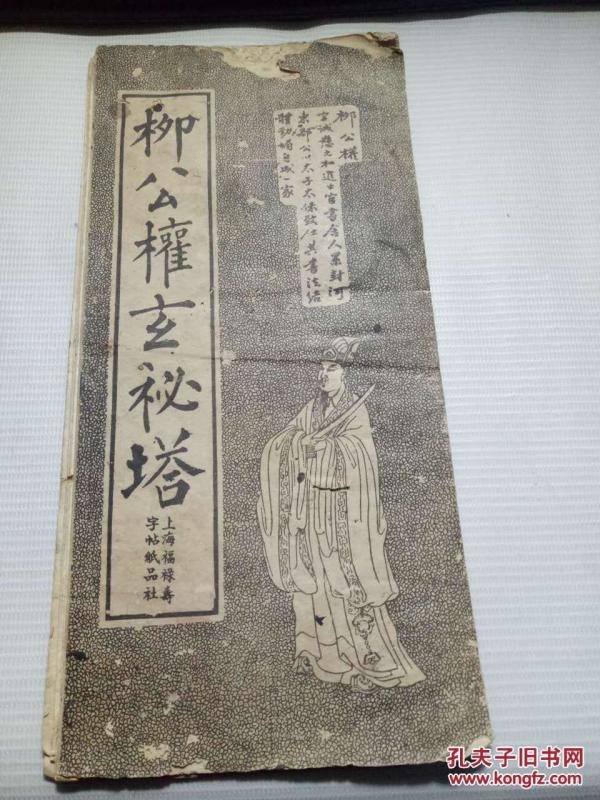 柳公權
字誠懸元和進士官書舍人累封河
東郡公以太子太保致仕其書法结
體勁媚自成一家
柳公權玄秘塔
上海福祿壽
字帖紙品社
孔夫子旧书网
www.kongfz.com